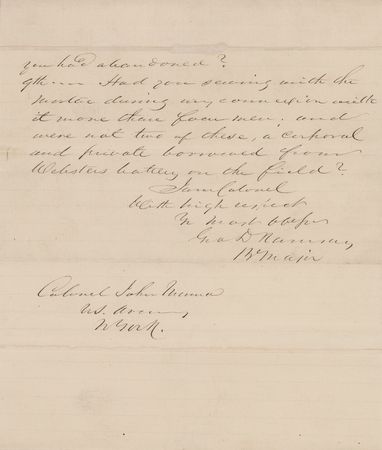 you had abandoned?
9th — Had you serving with the
mortar during my connexion with
it more than four men; and
were not two of these, a corporal
and private borrowed from
Websters battery on the field?
I am Colonel
With high respect
Yr Most Obt
Geo D Ramsay
Bt Major
Colonel John
US. Army
N York.